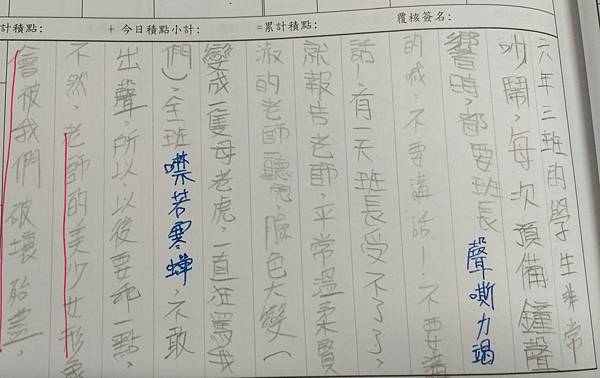 計積點:
+ 今日積點小計:
=累計積點:
覆核簽名:
六年三班的學生非常
吵鬧,每次預備鐘聲
響時,都要班長聲嘶力竭
的喊:不要講話!不要講
話!有一天班長受不了了,
就報告老師,平常溫柔賢
淑的老師一聽完,臉色大變(
變成一隻母老虎,一直狂罵我
們),全班噤若寒蟬,不敢
出聲,所以,以後要乖一點,
不然,老師的美少女形象
會被我們破壞殆盡。